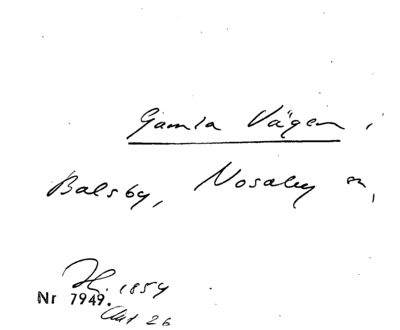 Gamla Vägen i
Balsby, Nosaby sn,
1859
Nr 7949.
26